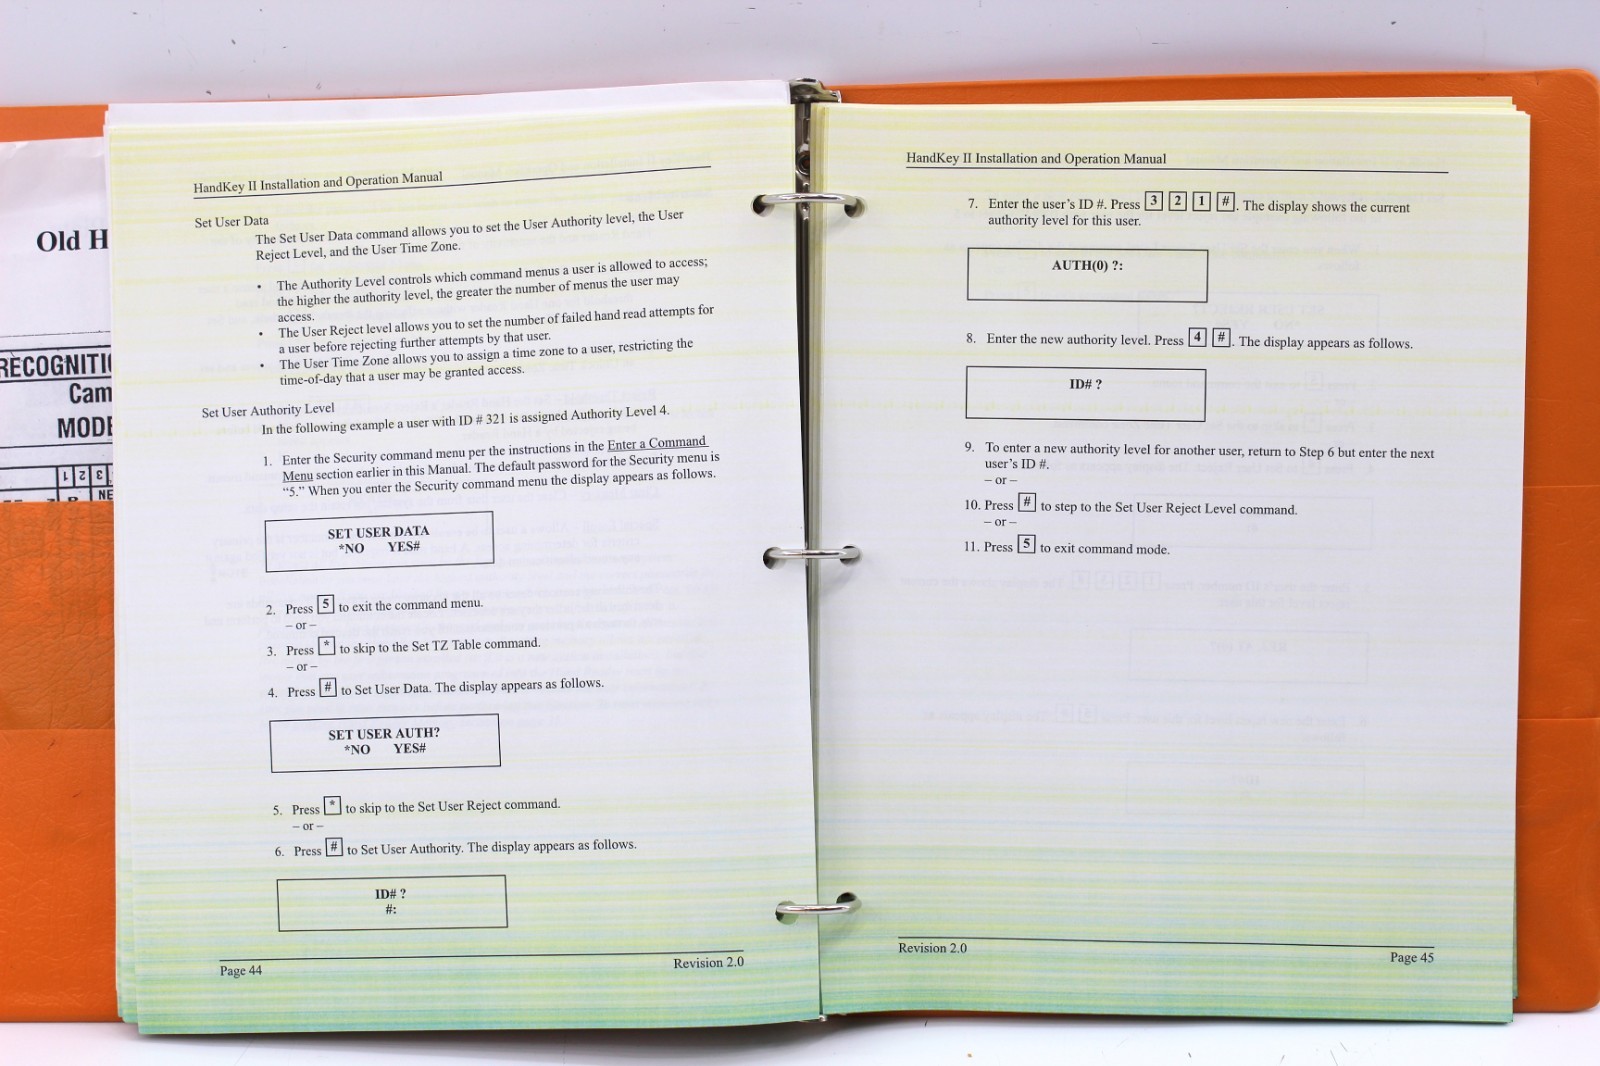 Old H
RECOGNITI
Cam
MODE
NE
HandKey II Installation and Operation Manual
Set User Data
The Set User Data command allows you to set the User Authority level, the User
Reject Level, and the User Time Zone.
• The Authority Level controls which command menus a user is allowed to access;
the higher the authority level, the greater the number of menus the user may
access.
• The User Reject level allows you to set the number of failed hand read attempts for
a user before rejecting further attempts by that user.
• The User Time Zone allows you to assign a time zone to a user, restricting the
time-of-day that a user may be granted access.
Set User Authority Level
In the following example a user with ID # 321 is assigned Authority Level 4.
1. Enter the Security command menu per the instructions in the Enter a Command
Menu section earlier in this Manual. The default password for the Security menu is
“5.” When you enter the Security command menu the display appears as follows.
SET USER DATA
*NO YES#
2. Press 5 to exit the command menu.
– or –
3. Press * to skip to the Set TZ Table command.
– or –
4. Press # to Set User Data. The display appears as follows.
SET USER AUTH?
*NO YES#
5. Press * to skip to the Set User Reject command.
– or –
6. Press # to Set User Authority. The display appears as follows.
ID# ?
#:
Page 44 Revision 2.0
HandKey II Installation and Operation Manual
7. Enter the user’s ID #. Press 3 2 1 #. The display shows the current
authority level for this user.
AUTH(0) ?:
8. Enter the new authority level. Press 4 #. The display appears as follows.
ID# ?
9. To enter a new authority level for another user, return to Step 6 but enter the next
user’s ID #.
– or –
10. Press # to step to the Set User Reject Level command.
– or –
11. Press 5 to exit command mode.
Revision 2.0 Page 45